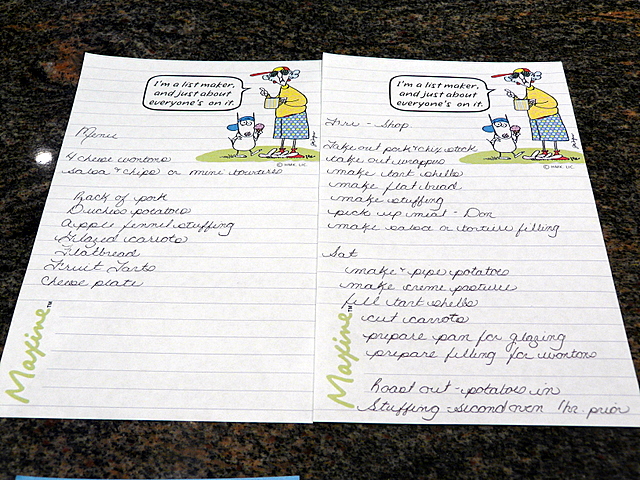 I'm a list maker,
and just about
everyone's on it.
© HMK. LIC.
Menu
4 cheese wontons
Salsa + chips or mini tourtieres
Rack of pork
Duchess potatoes
Apple fennel stuffing
Glazed carrots
Flatbread
Fruit Tarts
Cheese plate
Maxine™
I'm a list maker,
and just about
everyone's on it.
© HMK. LIC.
Fri - Shop
Take out pork + chix stock
take out wrappers
make tart shells
make flatbread
make stuffing
pick up meat - Don
make salsa or torture filling
Sat
make + pipe potatoes
make creme
fill tart shells
cut carrots
prepare pan for glazing
prepare filling for wontons
Roast out - potatoes in
Stuffing - second oven 1 hr. prior
Maxine™